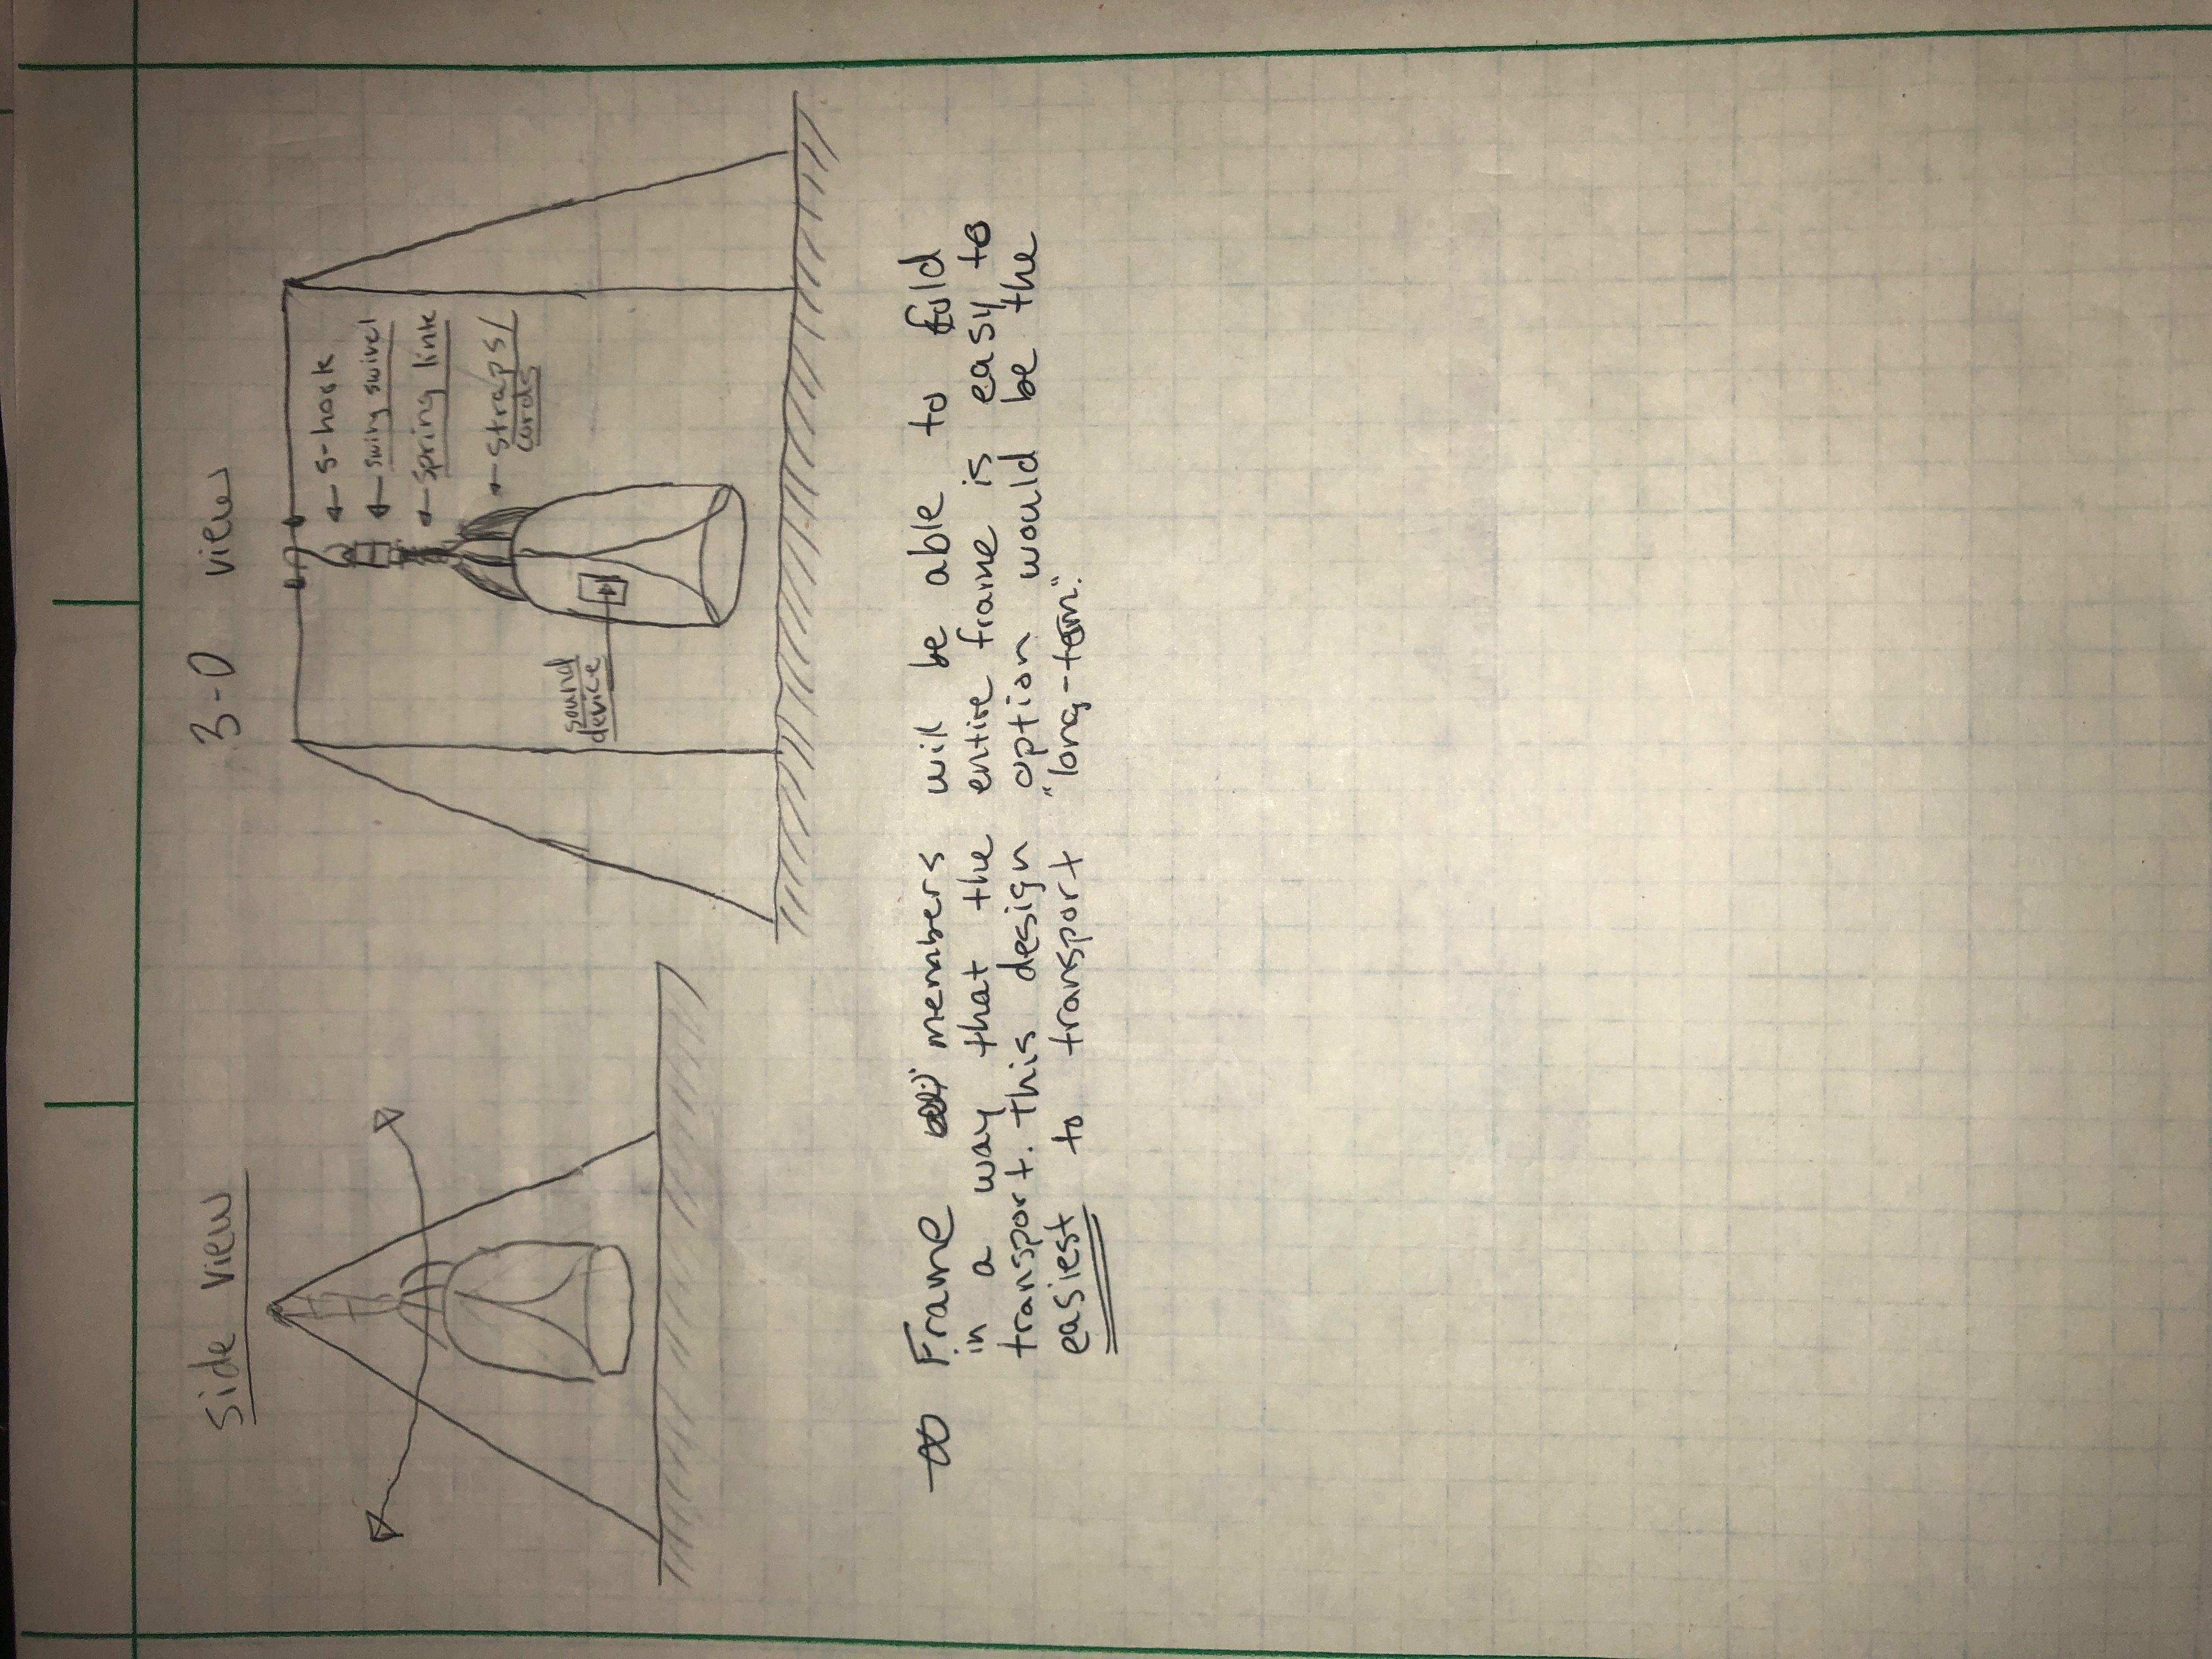 side view
3-D view
s-hook
swing swivel
spring link
straps/
cords
sound
device
Frame members will be able to fold
in a way that the entire frame is easy to
transport. This design option would be the
easiest to transport "long-term."